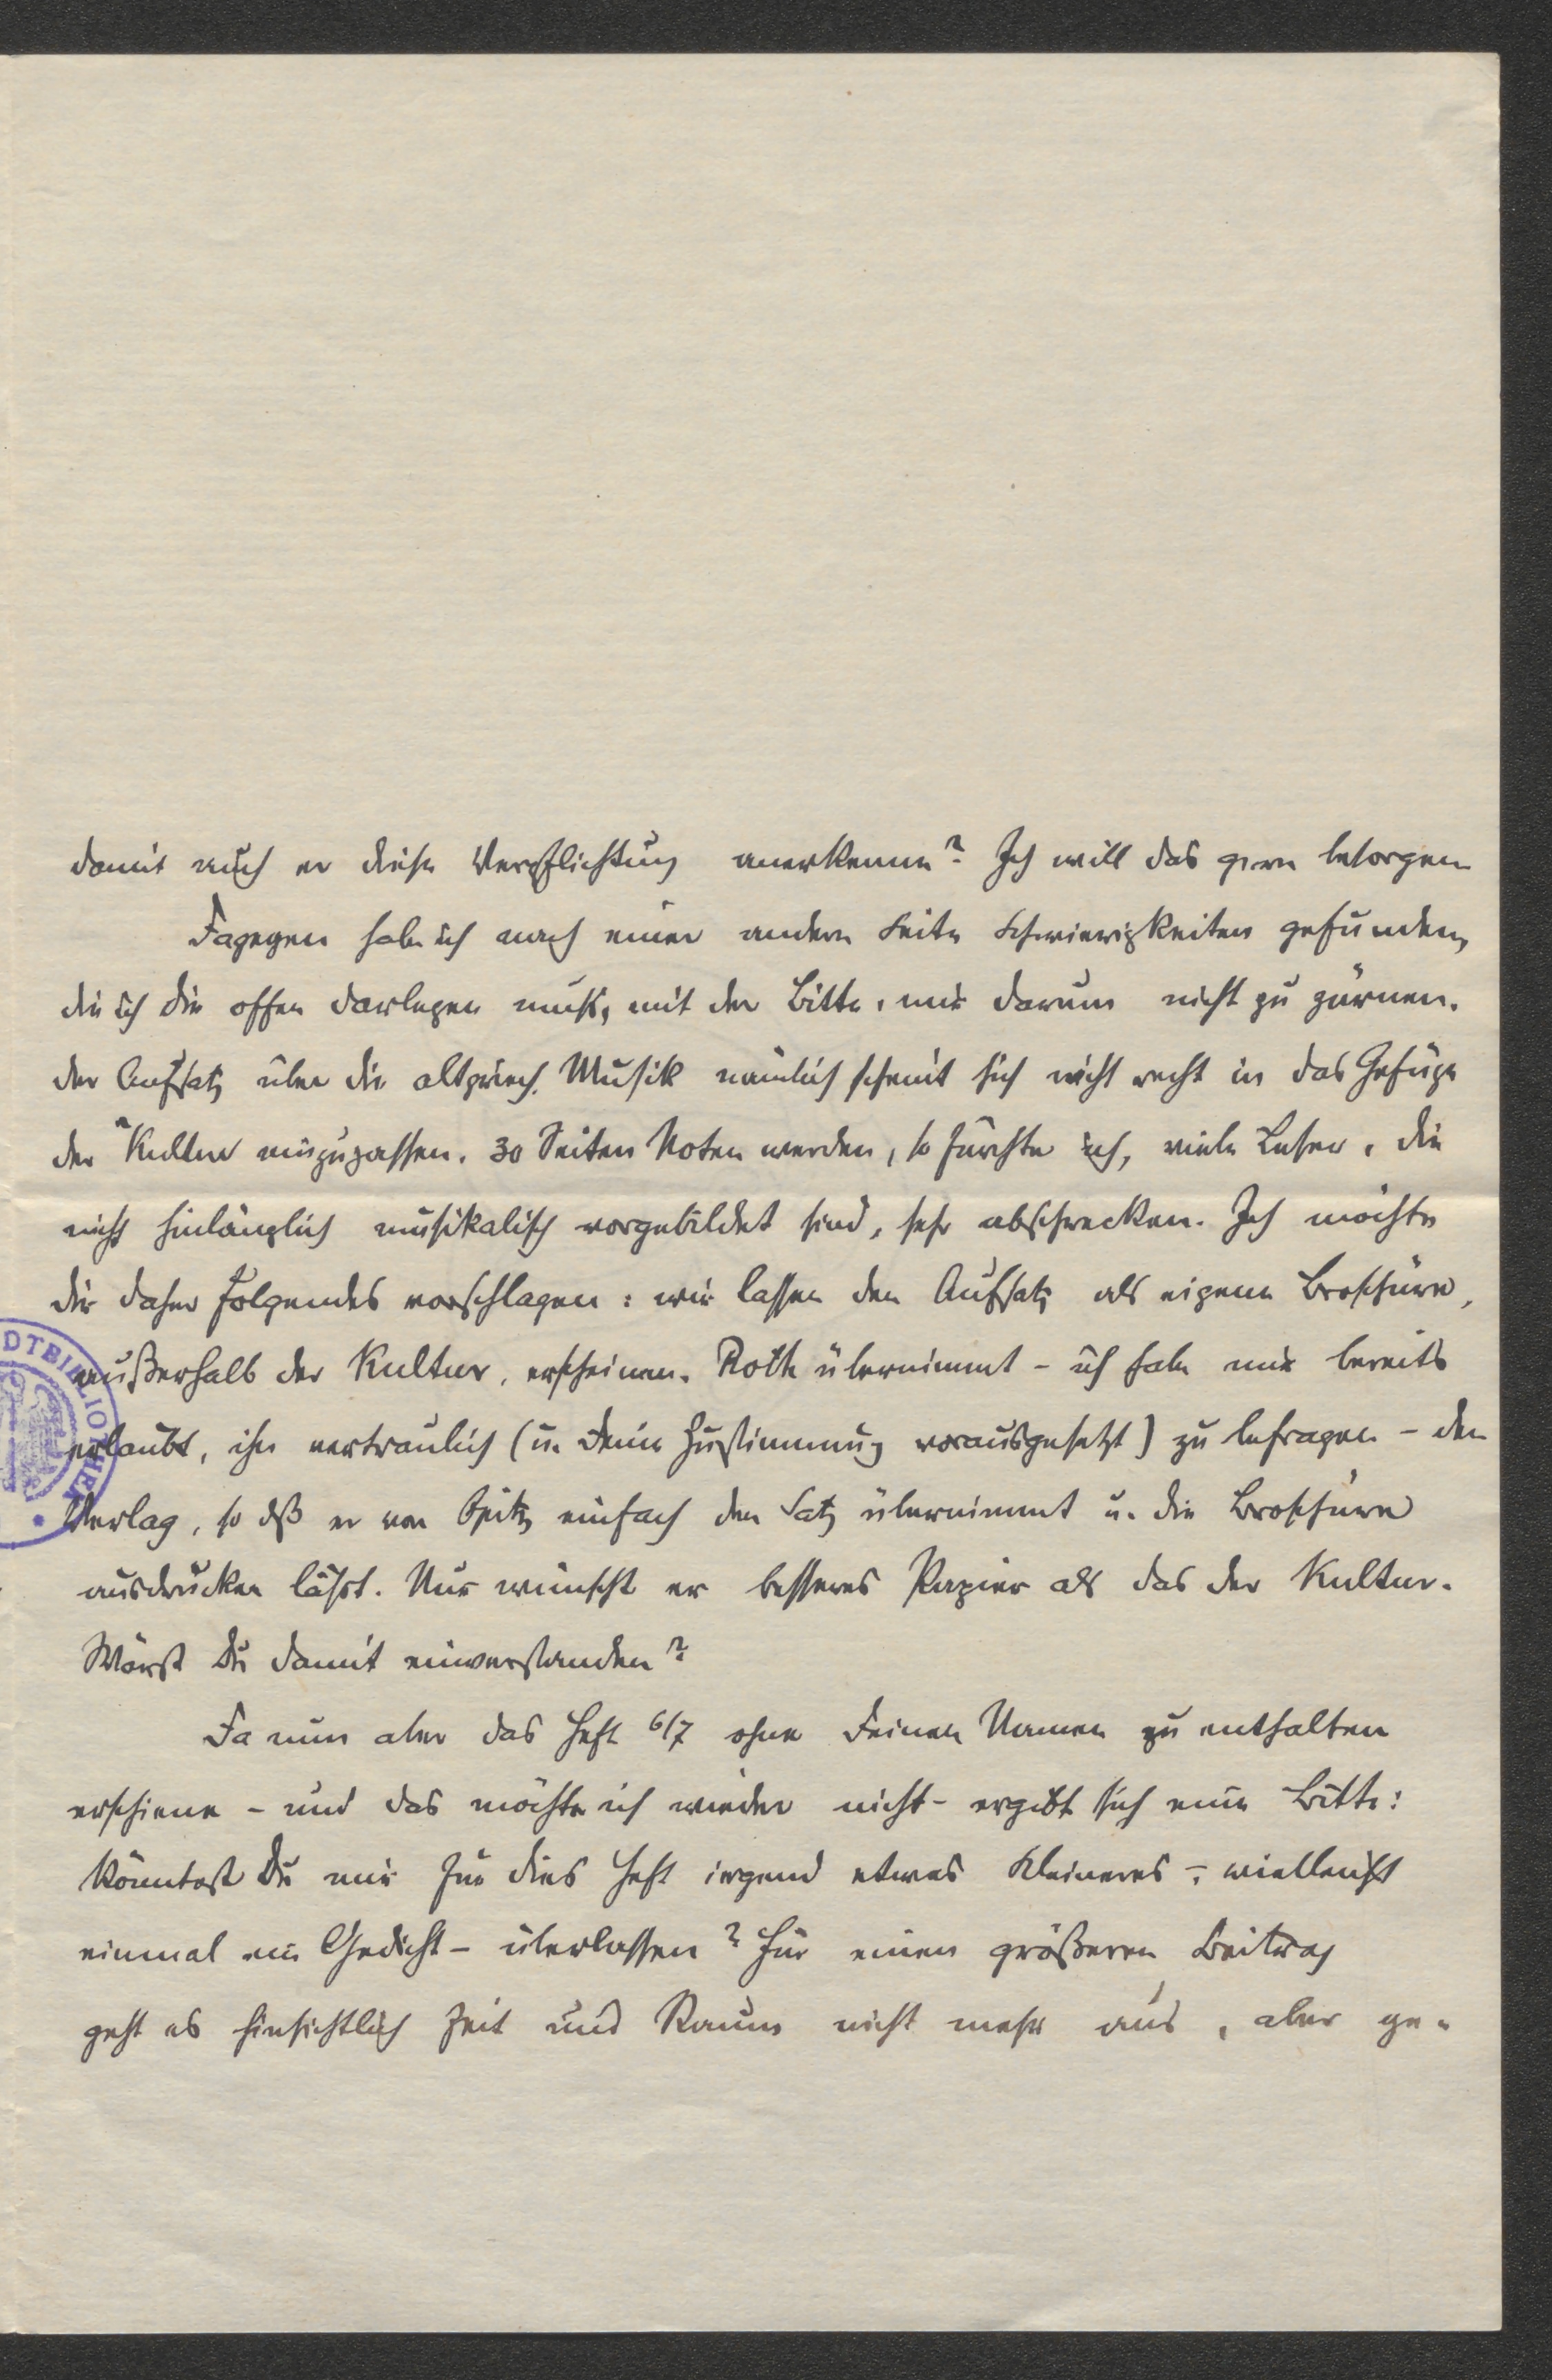 damit auch er diese Verpflichtung anerkenne? Ich will das gern besorgen
Dagegen habe ich nach einer andern Seite Schwierigkeiten gefunden,
die ich Dir offen darlegen muß, mit der Bitte, mir darum nicht zu zürnen.
der Aufsatz über die altgriech. Musik nämlich scheint sich nicht recht in das Gefüge
der "Kultur einzupassen. 30 Seiten Noten werden, so fürchte ich, viele Leser, die
nicht hinlänglich musikalisch vorgebildet sind, sehr abschrecken. Ich möchte
Dir daher folgendes vorschlagen: wir lassen den Aufsatz als eigene Broschüre,
außerhalb der Kultur, erscheinen. Roth übernimmt - ich habe mir bereits
erlaubt, ihn vertraulich (u. Deine Zustimmung vorausgesetzt) zu befragen - den
Verlag, so dß er von Opitz einfach den Satz übernimmt u. die Broschüre
ausdrucken läßt. Nur wünscht er besseres Papier als das der Kultur.
Wärst Du damit einverstanden?
Da nun aber das Heft 6/7 ohne Deinen Namen zu enthalten
erschiene - und das möchte ich wieder nicht - ergibt sich eine Bitte:
Könntest Du mir für dies Heft irgend etwas Kleineres - vielleicht
einmal ein Gedicht - überlassen? Für einen größeren Beitrag
geht es hinsichtlich Zeit und Raum nicht mehr aus, aber ge-
DTBIBLIOTHEK